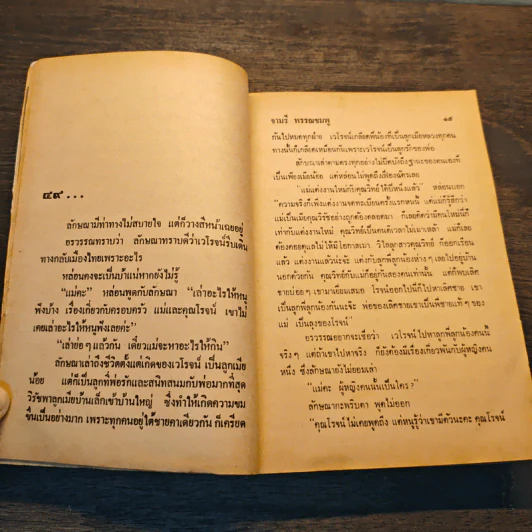 ๔๙...
ลักษณามีท่าทางไม่สบายใจ แต่ก็วางสีหน้าเฉยอยู่
อรวรรณทราบว่า ลักษณาทราบดีว่าเวโรจน์รีบเดิน
ทางกลับเมืองไทยเพราะอะไร
หล่อนคงจะเป็นบ้าแน่หากยังไม่รู้
"แม่คะ" หล่อนพูดกับลักษณา "เล่าอะไรให้หนู
ฟังบ้าง เรื่องเกี่ยวกับครอบครัว แม่และคุณโรจน์ เขาไม่
เคยเล่าอะไรให้หนูฟังเลยค่ะ"
"เล่าย่อๆ แล้วกัน เดี๋ยวแม่จะหาอะไรให้กิน"
ลักษณาเล่าถึงชีวิตตั้งแต่เกิดของเวโรจน์ เป็นลูกเมีย
น้อย แต่ก็เป็นลูกที่พ่อรักและสนิทสนมกับพ่อมากที่สุด
วิรัชพาลูกเมียบ้านเล็กเข้าบ้านใหญ่ ซึ่งทำให้เกิดความขม
ขื่นเป็นอย่างมาก เพราะทุกคนอยู่ใต้ชายคาเดียวกัน ก็เครียด
จามรี พรรณชมพู
กันไปหมดทุกฝ่าย เวโรจน์เกลียดพี่น้องที่เป็นลูกเมียหลวงทุกคน
ทางนั้นก็เกลียดเหมือนกันเพราะเวโรจน์เป็นลูกรักของพ่อ
ลักษณาเล่าตามตรงทุกอย่างไม่ปิดบังถึงฐานะของตนเองที่
เป็นเพียงเมียน้อย แต่หล่อนไม่พูดถึงสียงฉัตรเลย
"แม่แต่งงานใหม่กับคุณวิทย์ ได้ปีหนึ่งแล้ว" หล่อนบอก
"ความจริงก็เพิ่งแต่งงานจดทะเบียนครั้งแรกหนนี้ แต่แม่ก็รู้สึกว่า
แม่เป็นเมียคุณวิรัชอย่างถูกต้องตลอดมา ก็เลยคิดว่าหนใหม่นี่ก็
เท่ากับแต่งงานใหม่ คุณวิทย์เป็นคนดีตัวเวลาไม่เมาเหล้า แม่ก็เลย
ต้องคอยดูแลไม่ให้มีโอกาสเมา วิไลลูกสาวคุณวิทย์ ก็ออกเรือน
แล้ว แต่งงานแล้วน่ะจ้ะ แต่งกับลูกพี่ลูกน้องห่างๆ เลยไปอยู่บ้าน
นอกด้วยกัน คุณวิทย์กับแม่ก็อยู่กันสองคนเท่านั้น แต่ก็พบเลิศ
ชายบ่อยๆ เขามาเยี่ยมเสมอ โรจน์ออกไปนี่ก็ไปหาเลิศชาย เขา
เป็นลูกพี่ลูกน้องกันนะจ๊ะ พ่อของเลิศชายเขาเป็นพี่ชายแท้ๆ ของ
แม่ เป็นลุงของโรจน์"
อรวรรณอยากจะเชื่อว่า เวโรจน์ไปหาลูกพี่ลูกน้องคนนั้น
จริงๆ แต่ถ้าเขาไปหาจริง ก็ยังคงมีเรื่องเกี่ยวพันกับผู้หญิงคน
หนึ่ง ซึ่งลักษณายังไม่ยอมเล่า
"แม่คะ ผู้หญิงคนนั้นเป็นใคร?"
ลักษณากะพริบตา พูดไม่ออก
"คุณโรจน์ไม่เคยพูดถึง แต่หนูรู้ว่าเขามีตัวนะคะ คุณโรจน์